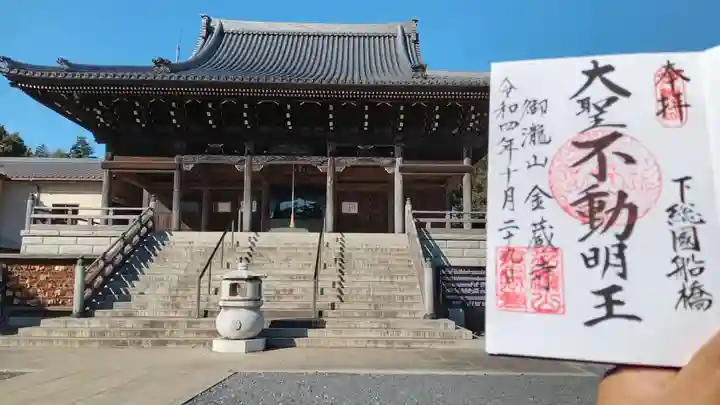 奉拝
下総國船橋
大聖不動明王
御瀧山 金蔵寺
令和四年十月二十九日